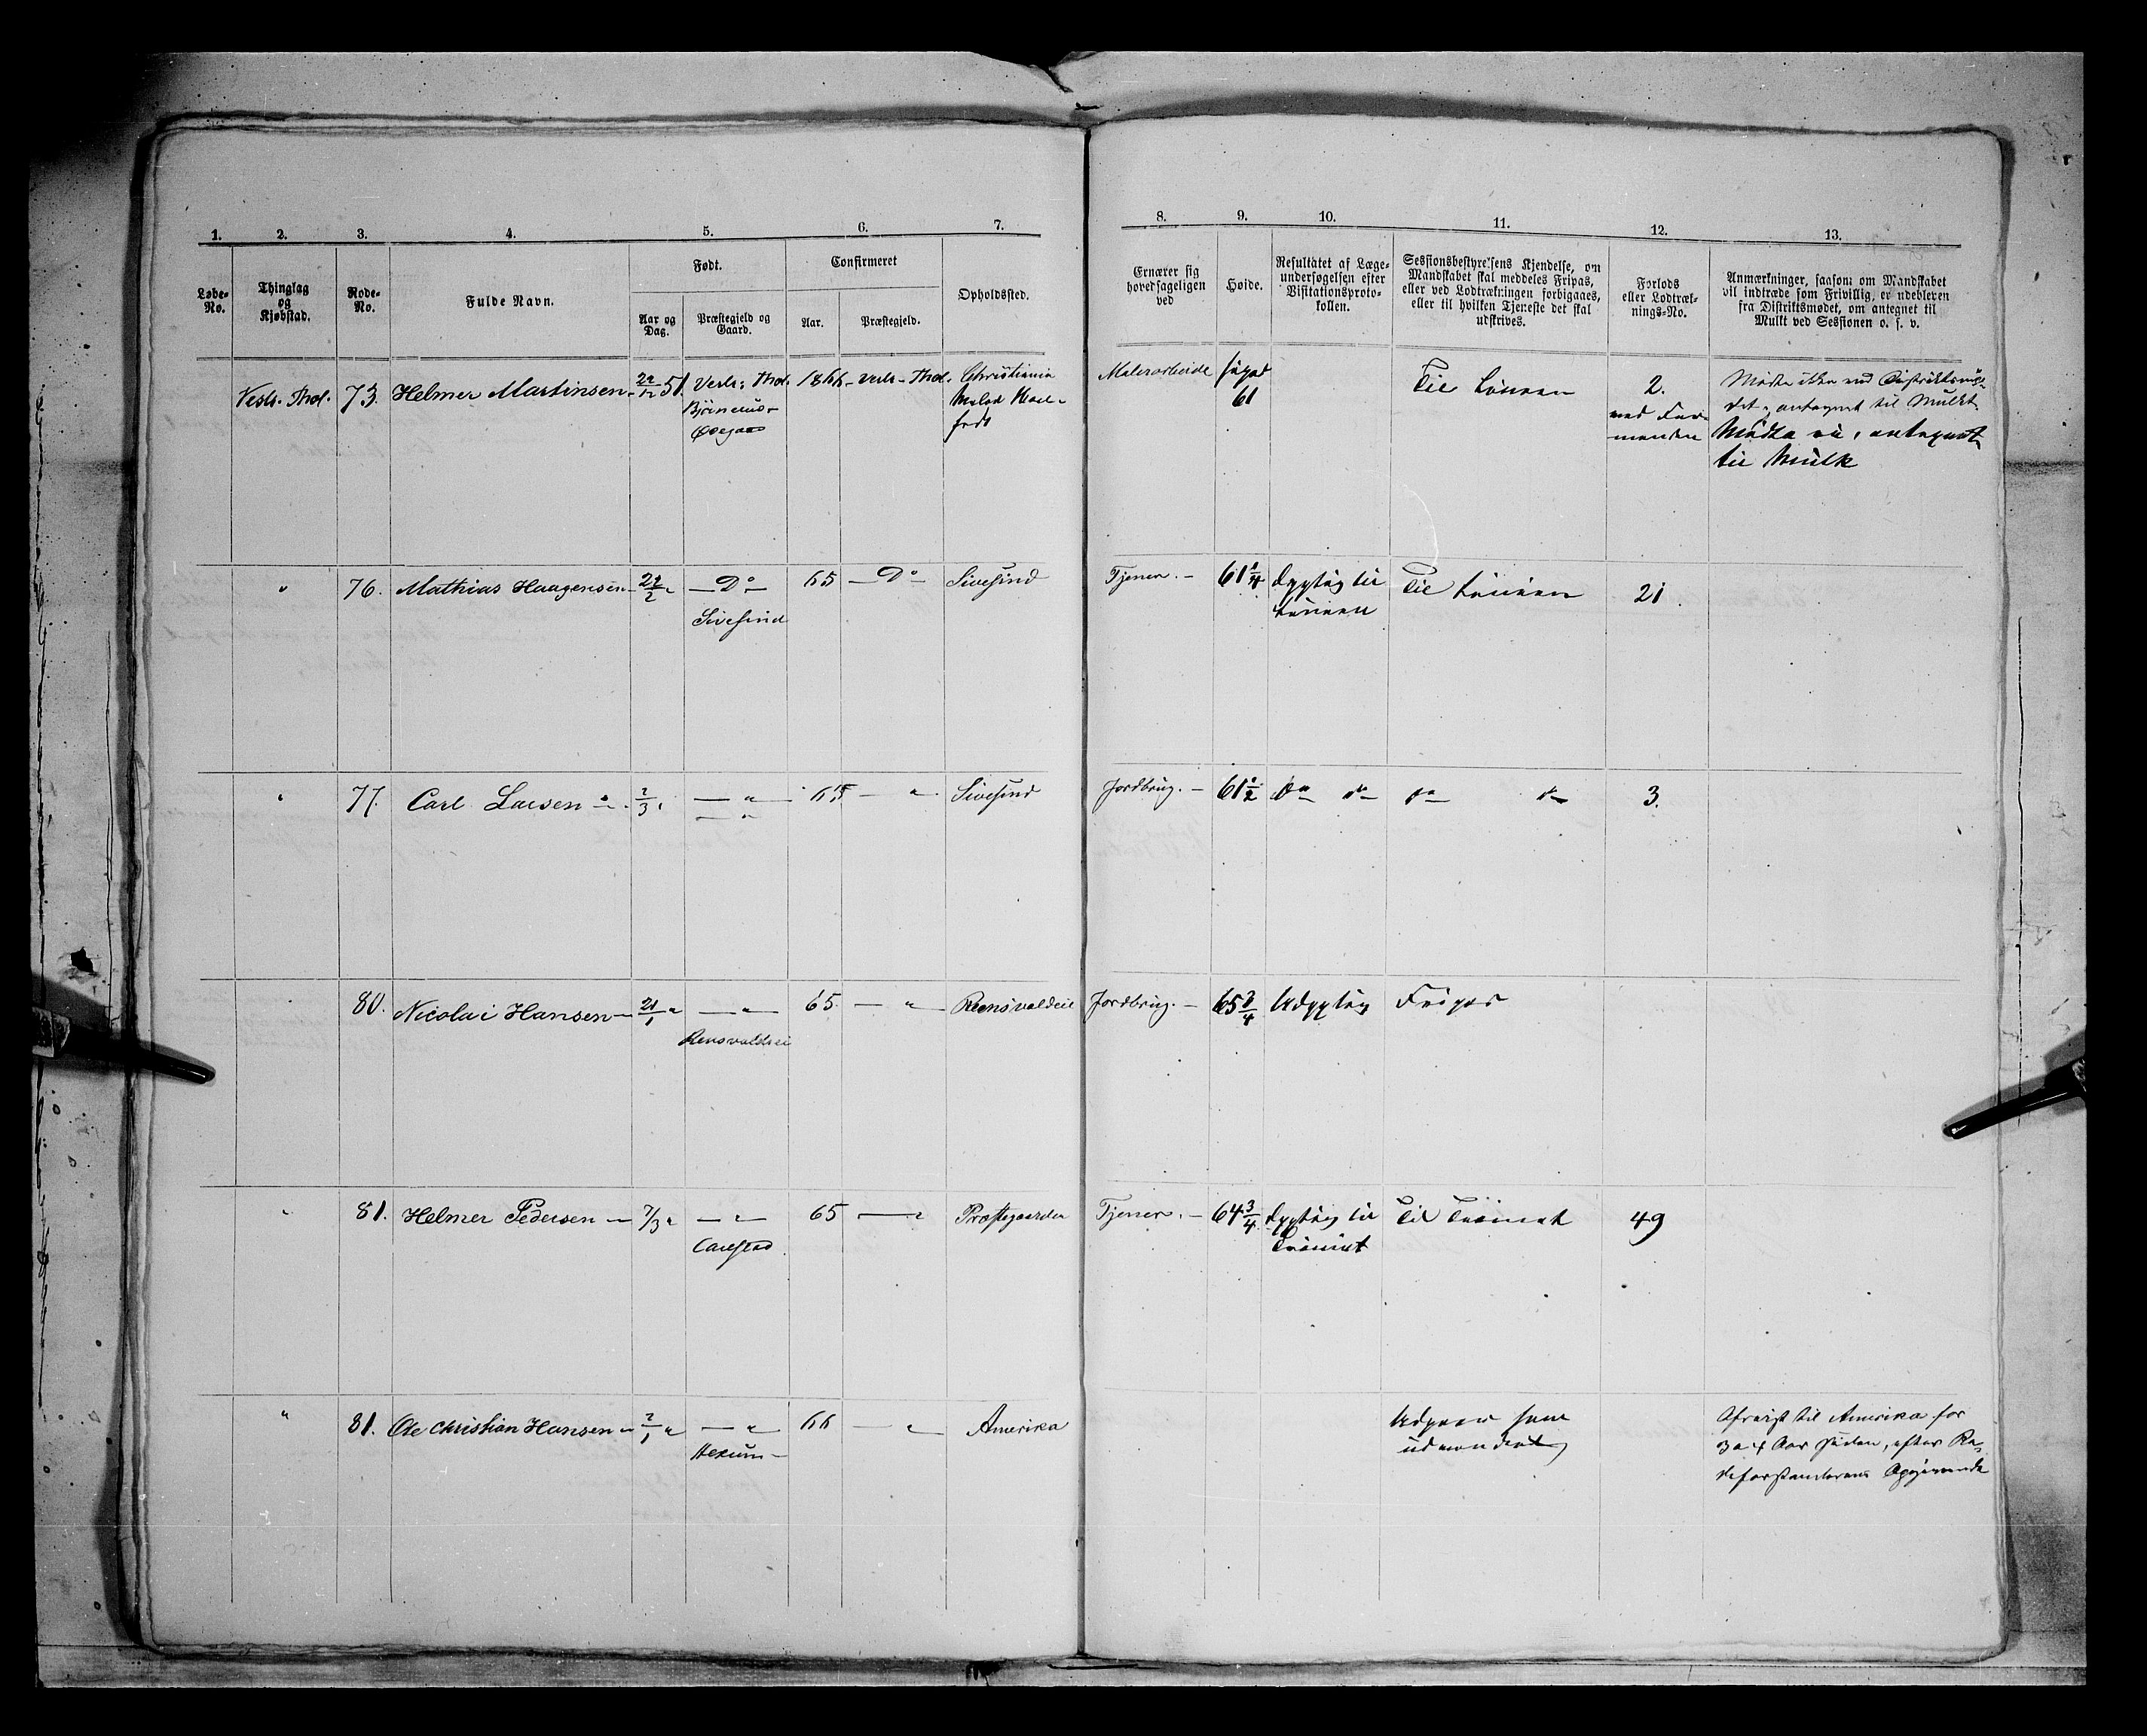 1. 2. 3. 4. 5. 6. 7.
Løbe-
No.
Thinglag
og
Kjøbstad.
Rode-
No.
Fulde Navn.
Født.
Aar og
Dag.
Præstegjeld og
Gaard.
Confirmeret
Aar.
Præstegjeld.
Opholdssted.
8. 9. 10. 11. 12. 13.
Ernærer sig
hovedsageligen
ved
Høide.
Resultatet af Læge-
undersøgelsen efter
Visitationsproto-
kollen.
Sessionsbestyrelsens Kjendelse, om
Mandskabet skal meddeles Fripas,
eller ved Lodtrækningen forbigaaes,
eller til hvilken Tjeneste det skal
udskrives.
Forlods
eller Lodtræk-
nings-No.
Anmærkninger, saasom om Mandskabet
vil indtræde som Frivillig, er udebleven
fra Distriktsmødet, om antegnet til
Mulkt ved Sessionen o. s. v.
Vestr. Thot. 73. Helmer Martinsen 51. Vestr. Thot. 1866 Vestr. Thot. Christiania
Malerarbeide 61 Til Linien 2.
Mødte ikke ved Distriktsmø-
det, antegnet til Mulkt.
Mødte ei, antegnet
til Mulk
" 76. Mathias Haagensen 65 Do Sivesind
— Do —
Sivesind
Tjener. — 61 1/4 Dygtig til
Linien
Til Linien 21.
" 77. Carl Larsen 65 — " Sivesind
Jordbrug. — 61 1/2 do do do do 3.
80. Nicolai Hansen — 21/1 " — " — 65. — "
Jordbrug. — 65 3/4 Udygtig Fripas
" 81. Helmer Pedersen — 7/3 " — " — 65 — " Præstegaarden
Tjener. — 64 3/4 Dygtig til
Trainet
Til Trainet 49
" 81. Ole Christian Hansen — " — " — 66 — " Amerika
Hekum —
Udgaar som
udvandret
Afreist til Amerika for
3 a 4 Aar siden, efter Ro-
deforstanderens Opgivende